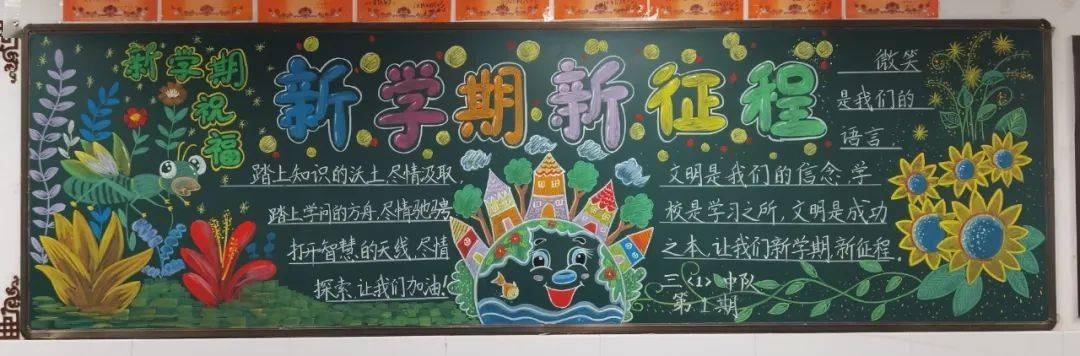 新学期
祝福
新学期新征程
踏上知识的沃土,尽情汲取
踏上学问的方舟,尽情驰骋
打开智慧的天线,尽情
探索,让我们加油!
微笑
是我们的
语言
文明是我们的信念,学
校是学习之所,文明是成功
之本,让我们新学期,新征程.
三<1>中队
第1期